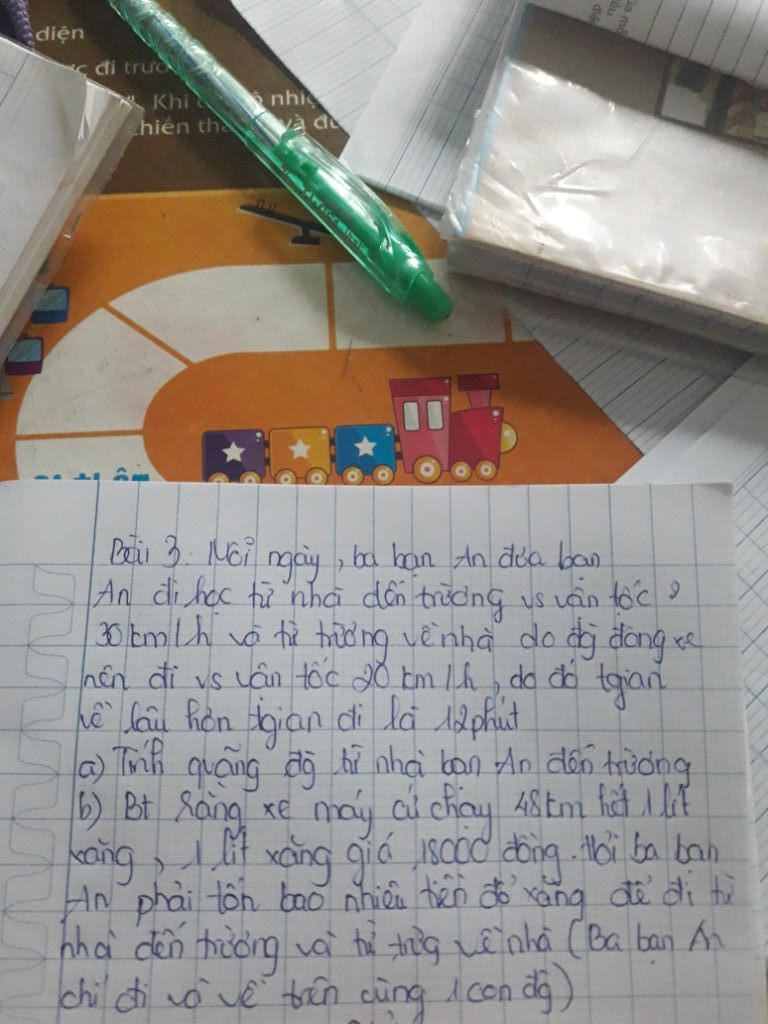 diện
ợc đi trướ
Khi nhiệ
chiến thắ và đư
Bài 3. Mỗi ngày, ba bạn An đưa bạn
An đi học từ nhà đến trường vs vận tốc
30 km/h và từ trường về nhà do đg đông xe
nên đi vs vận tốc 20 km/h, do đó tgian
về lâu hơn tgian đi là 12 phút
a) Tính quãng đg từ nhà bạn An đến trường
b) Bt rằng xe máy cứ chạy 48km hết 1 lít
xăng, 1 lít xăng giá 18000 đồng. Hỏi ba bạn
An phải tốn bao nhiêu tiền đổ xăng để đi từ
nhà đến trường và từ trưg về nhà (Ba bạn An
chỉ đi và về trên cùng 1 con đg)